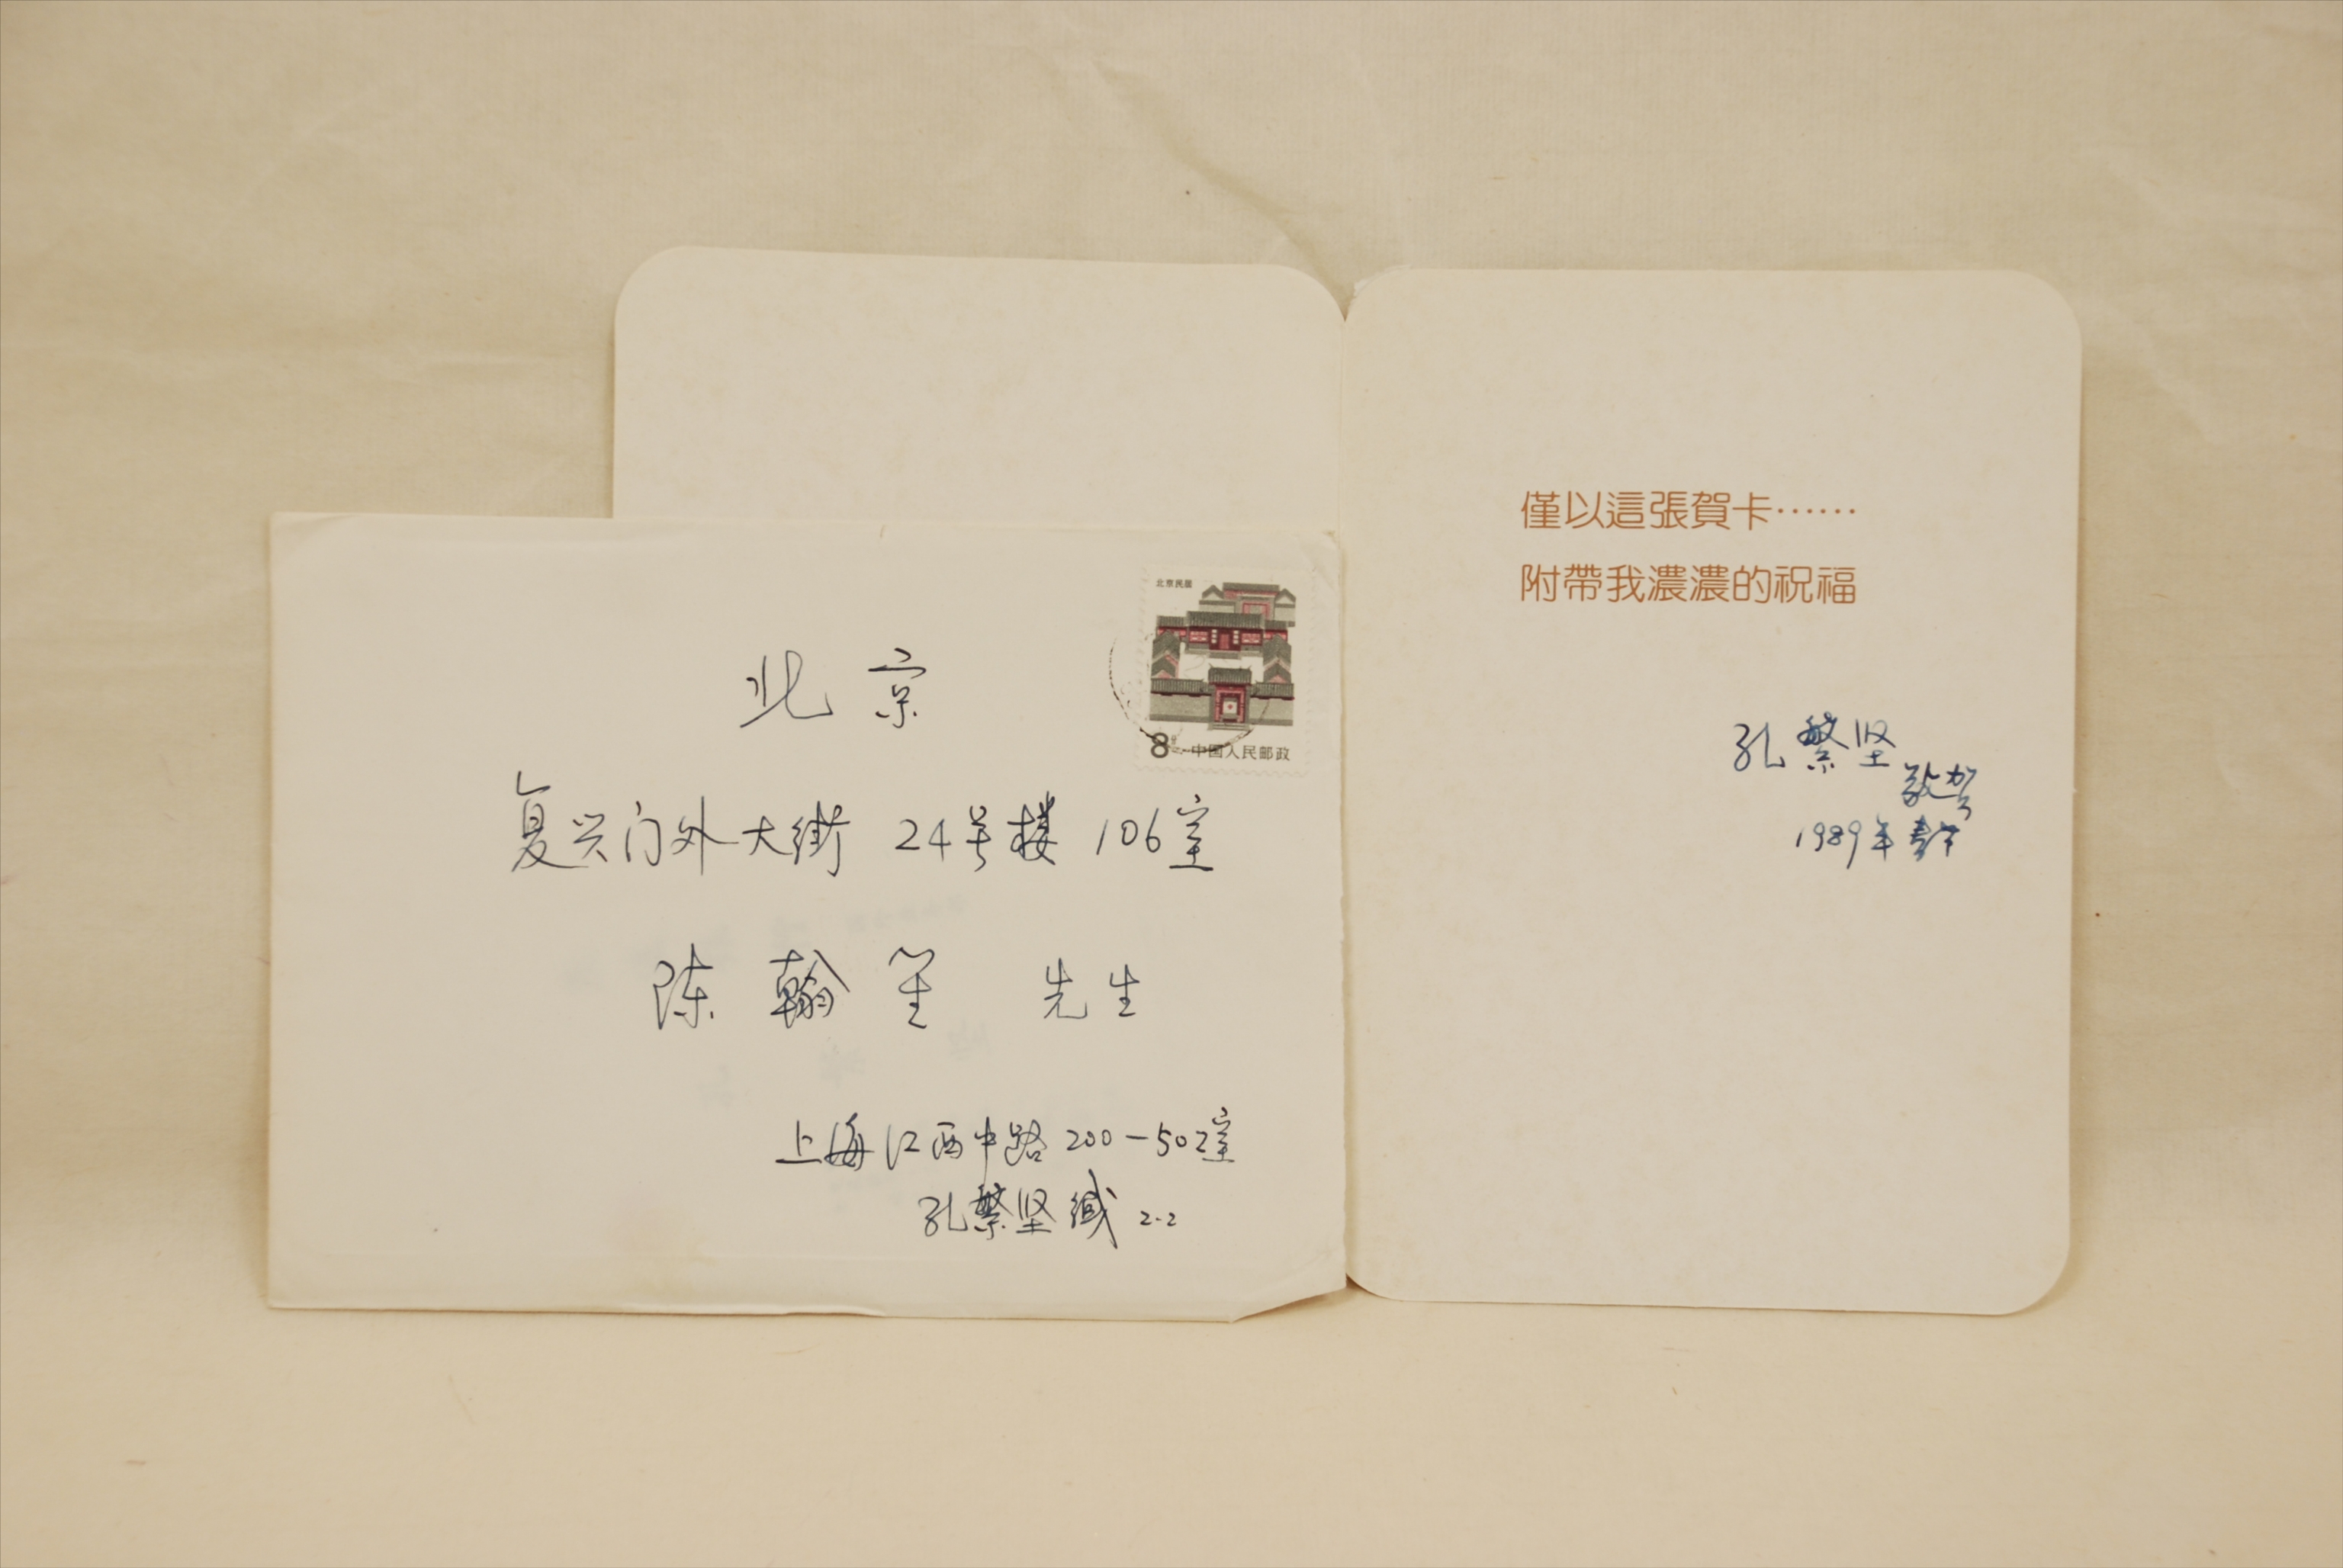 北京民居
8分 中国人民邮政
北京
复兴门外大街 24号楼 106室
陈翰笙 先生
上海江西中路 200-502室
孔繁坚缄 2.2
僅以這張賀卡······
附帶我濃濃的祝福
孔繁坚
敬贺
1989年春节